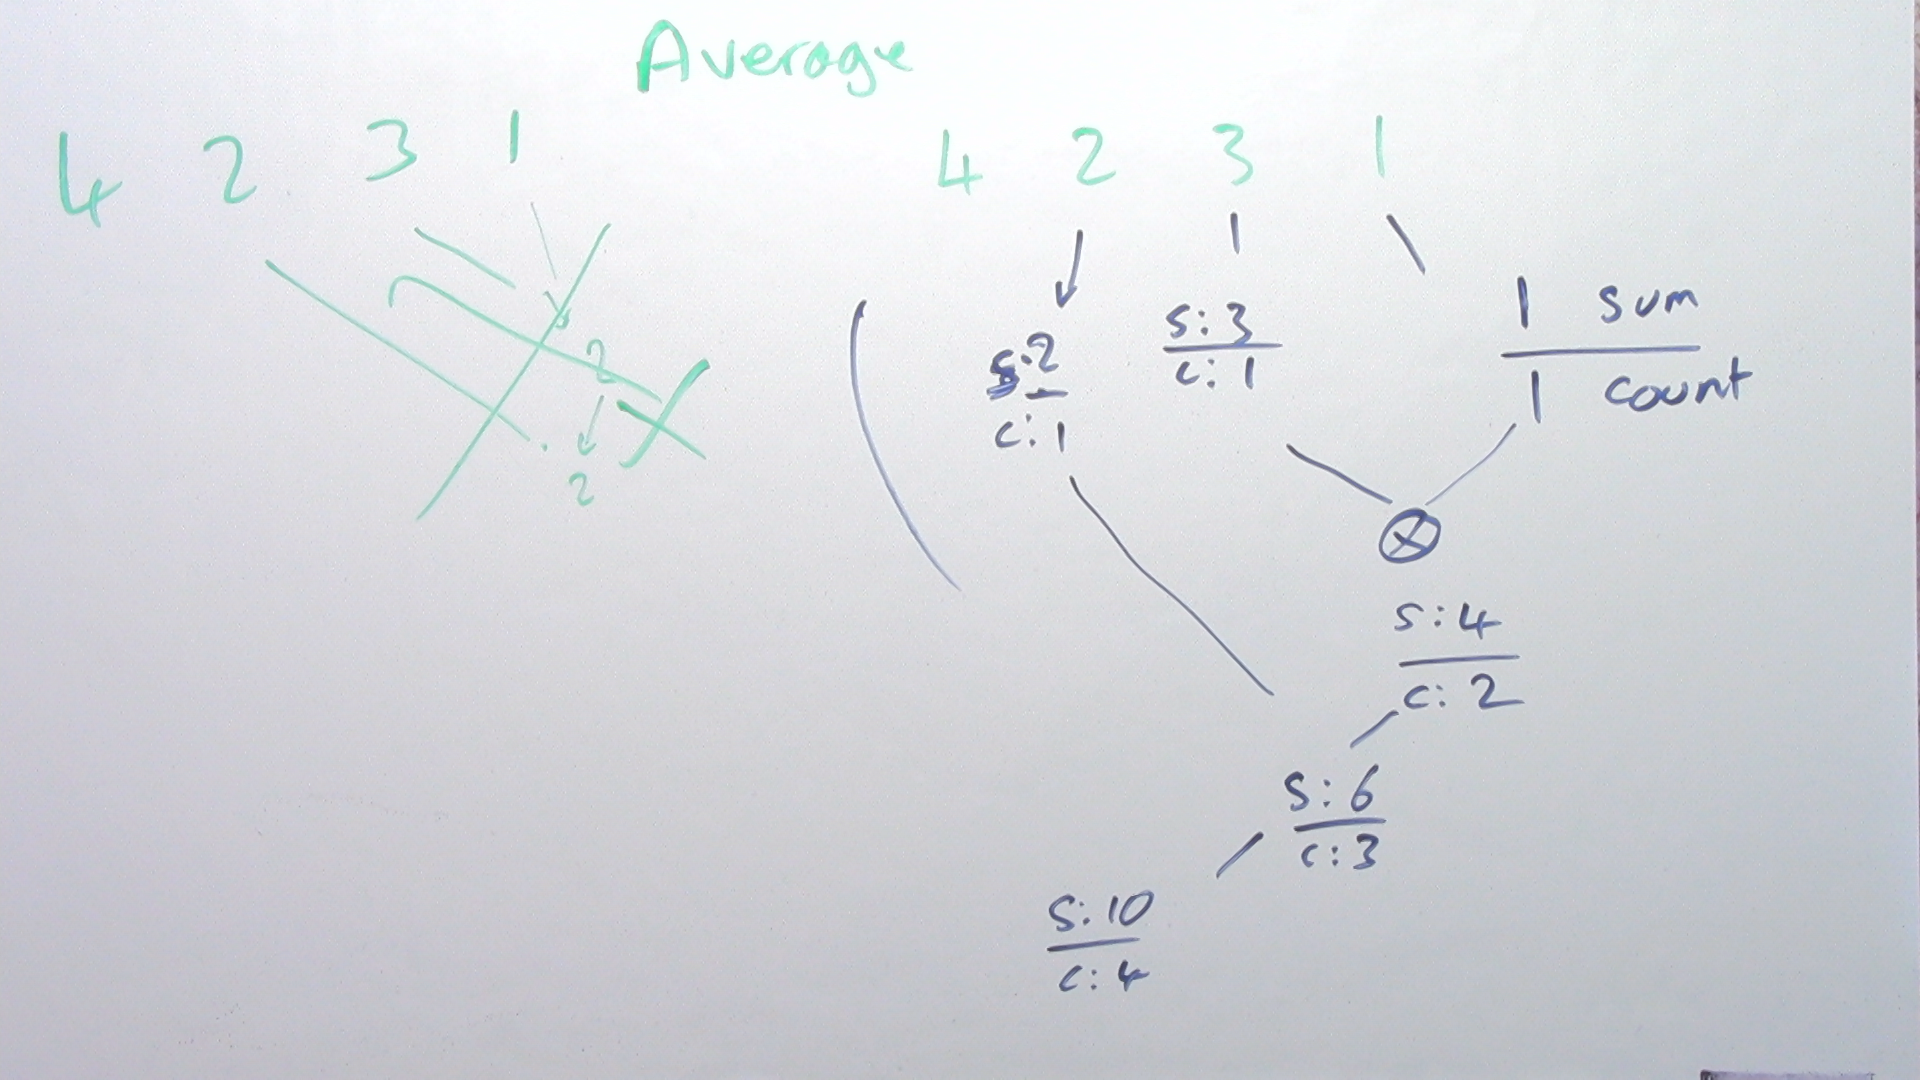 Average
4 2 3 1
2
2
4 2 3 1
s:2
c:1
s:3
c:1
1 sum
1 count
s:4
c:2
s:6
c:3
s:10
c:4